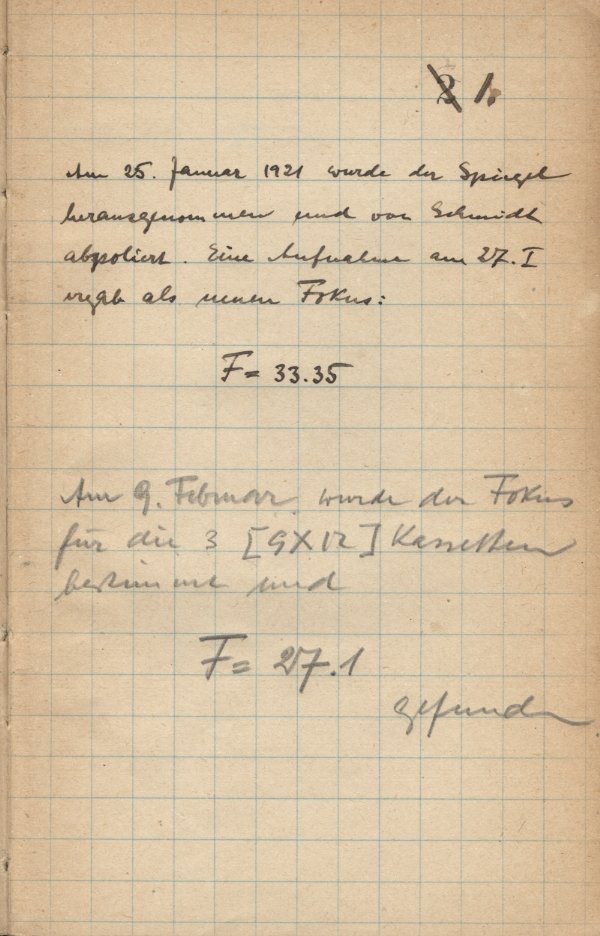 1.
Am 25. Januar 1921 wurde der Spiegel
herausgenommen und von Schmidt
abpoliert. Eine Aufnahme am 27. I
ergab als neuen Fokus:
F = 33.35
Am 9. Februar wurde der Fokus
für die 3 [9X12] Kassetten
bestimmt und
F = 27.1
gefunden